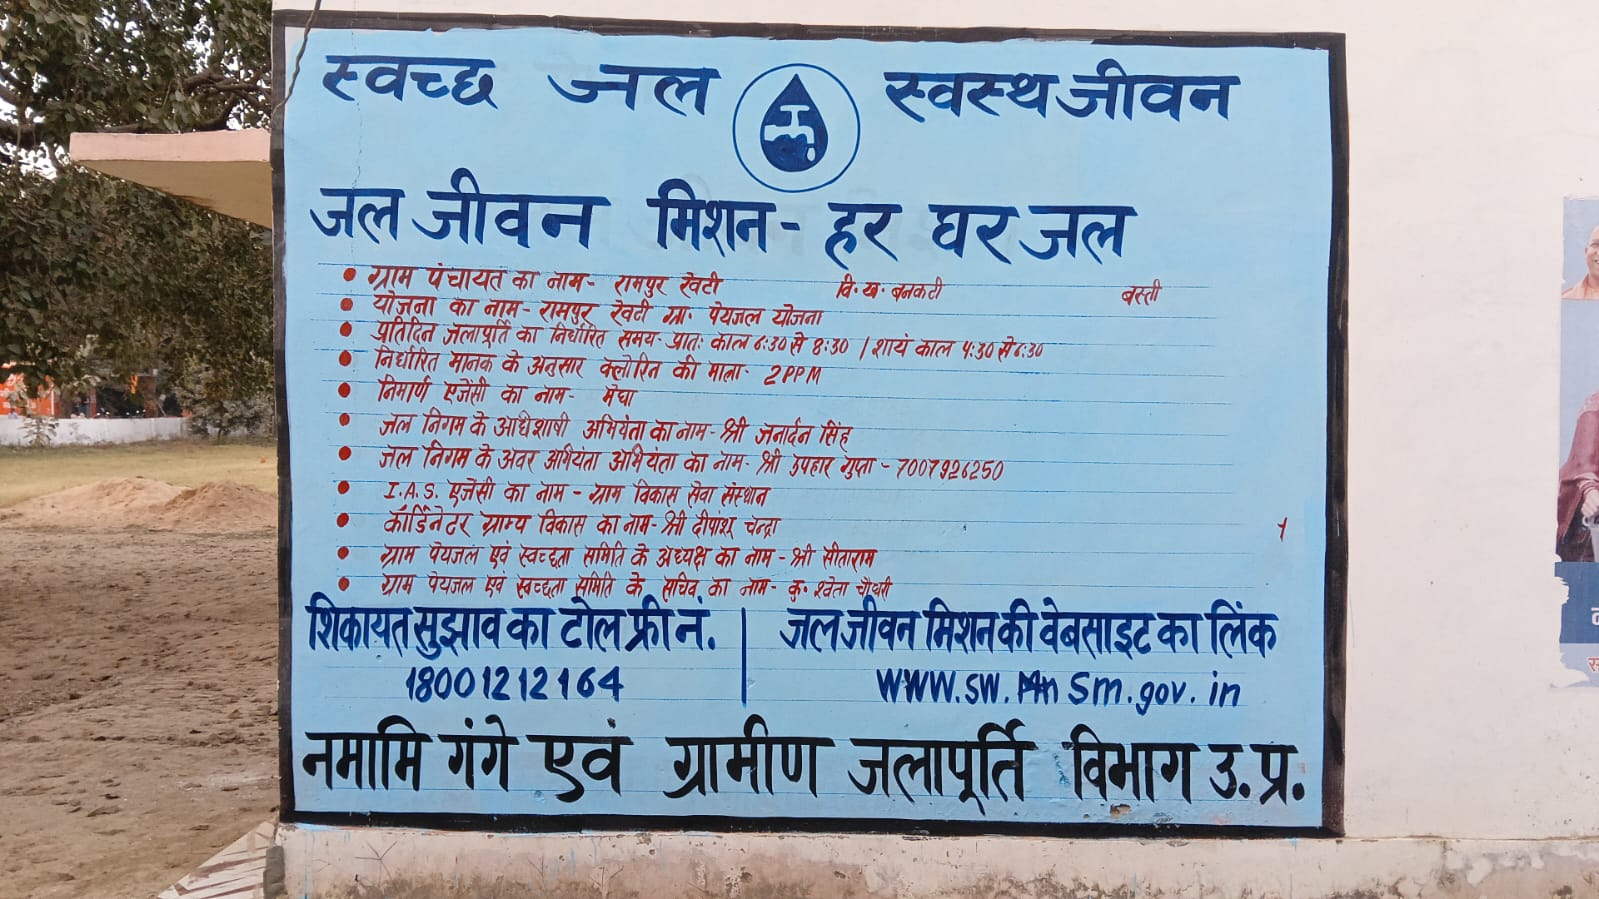 स्वच्छ जल स्वस्थ जीवन
जल जीवन मिशन - हर घर जल
• ग्राम पंचायत का नाम - रामपुर रेवटी वि. ख. बनकटी बस्ती
• योजना का नाम - रामपुर रेवटी ग्रा. पेयजल योजना
• प्रतिदिन जलापूर्ति का निर्धारित समय - प्रातः काल 6:30 से 8:30 / शायं काल 4:30 से 6:30
• निर्धारित मानक के अनुसार क्लोरिन की मात्रा - 2PPM
• निमार्ण एजेंसी का नाम - मेघा
• जल निगम के अधिशाषी अभियंता का नाम - श्री जनार्दन सिंह
• जल निगम के अवर अभियंता अभियंता का नाम - श्री उपहार गुप्ता - 7007926250
• I.A.S. एजेंसी का नाम - ग्राम विकास सेवा संस्थान
• कॉर्डिनेटर ग्राम्य विकास का नाम - श्री दीपांशू चन्द्रा
• ग्राम पेयजल एवं स्वच्छता समिति के अध्यक्ष का नाम - श्री सीताराम
• ग्राम पेयजल एवं स्वच्छता समिति के सचिव का नाम - कु. श्वेता चौधरी
शिकायत सुझाव का टोल फ्री नं. | जल जीवन मिशन की वेबसाइट का लिंक
18001212164 www.sw.mnsm.gov.in
नमामि गंगे एवं ग्रामीण जलापूर्ति विभाग उ.प्र.